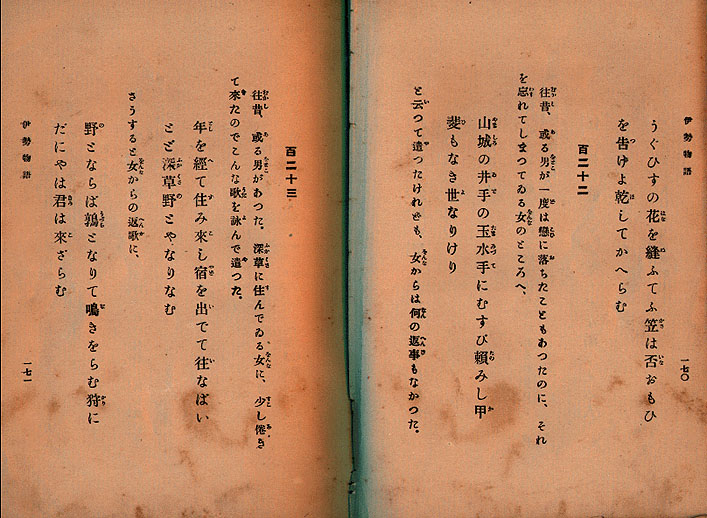 伊勢物語
うぐひすの花を縫ふてふ笠は否おもひ
を告けよ乾してかへらむ
百二十二
往昔、或る男が一度は戀に落ちたこともあつたのに、それ
を忘れてしまつてゐる女のところへ、
山城の井手の玉水手にむすび賴みし甲
斐もなき世なりけり
と云つて遣つたけれども、女からは何の返事もなかつた。
一七〇
百二十三
往昔、或る男があつた。深草に住んでゐる女に、少し倦き
て來たのでこんな歌を詠んで遣つた。
年を經て住み來し宿を出でて往なばい
とど深草野とやなりなむ
さうすると女からの返歌に、
野とならば鶉となりて鳴きをらむ狩に
だにやは君は來ざらむ
伊勢物語
一七一